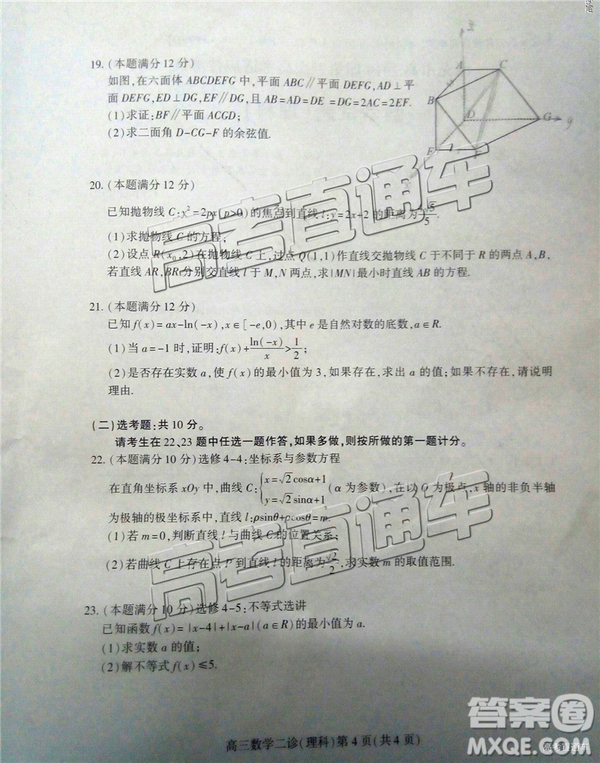 19. (本题满分12分)
如图,在六面体ABCDEFG中,平面ABC∥平面DEFG,AD⊥平
面DEFG,ED⊥DG,EF∥DG,且AB=AD=DE=DG=2AC=2EF.
(1)求证:BF∥平面ACGD;
(2)求二面角D-CG-F的余弦值.
A
C
B
D
G
E
20. (本题满分12分)
已知抛物线C:x²=2py(p>0)的焦点到直线l:y=2x+2的距离为
(1)求抛物线C的方程;
(2)设点R(x₀,2)在抛物线C上,过点Q(1,1)作直线交抛物线C于不同于R的两点A,B,
若直线AR,BR分别交直线l于M,N两点,求|MN|最小时直线AB的方程.
21. (本题满分12分)
已知f(x)=ax-ln(-x),x∈[-e,0),其中e是自然对数的底数,a∈R.
(1)当a=-1时,证明:f(x)+ln(-x)/x>1/2;
(2)是否存在实数a,使f(x)的最小值为3,如果存在,求出a的值;如果不存在,请说明
理由.
(二)选考题:共10分。
请考生在22、23题中任选一题作答,如果多做,则按所做的第一题计分。
22. (本题满分10分)选修4-4:坐标系与参数方程
在直角坐标系xOy中,曲线C:{x=√2cosα+1 y=√2sinα+1 (α为参数),在以O为极点,x轴的非负半轴
为极轴的极坐标系中,直线l:ρsinθ+ρcosθ=m.
(1)若m=0,判断直线l与曲线C的位置关系;
(2)若曲线C上存在点P到直线l的距离为√2/2,求实数m的取值范围.
23. (本题满分10分)选修4-5:不等式选讲
已知函数f(x)=|x-4|+|x-a|(a∈R)的最小值为a.
(1)求实数a的值;
(2)解不等式f(x)≤5.
高三数学二诊(理科)第4页(共4页)
高考直通车
高考直通车
答案圈
MXQE.COM